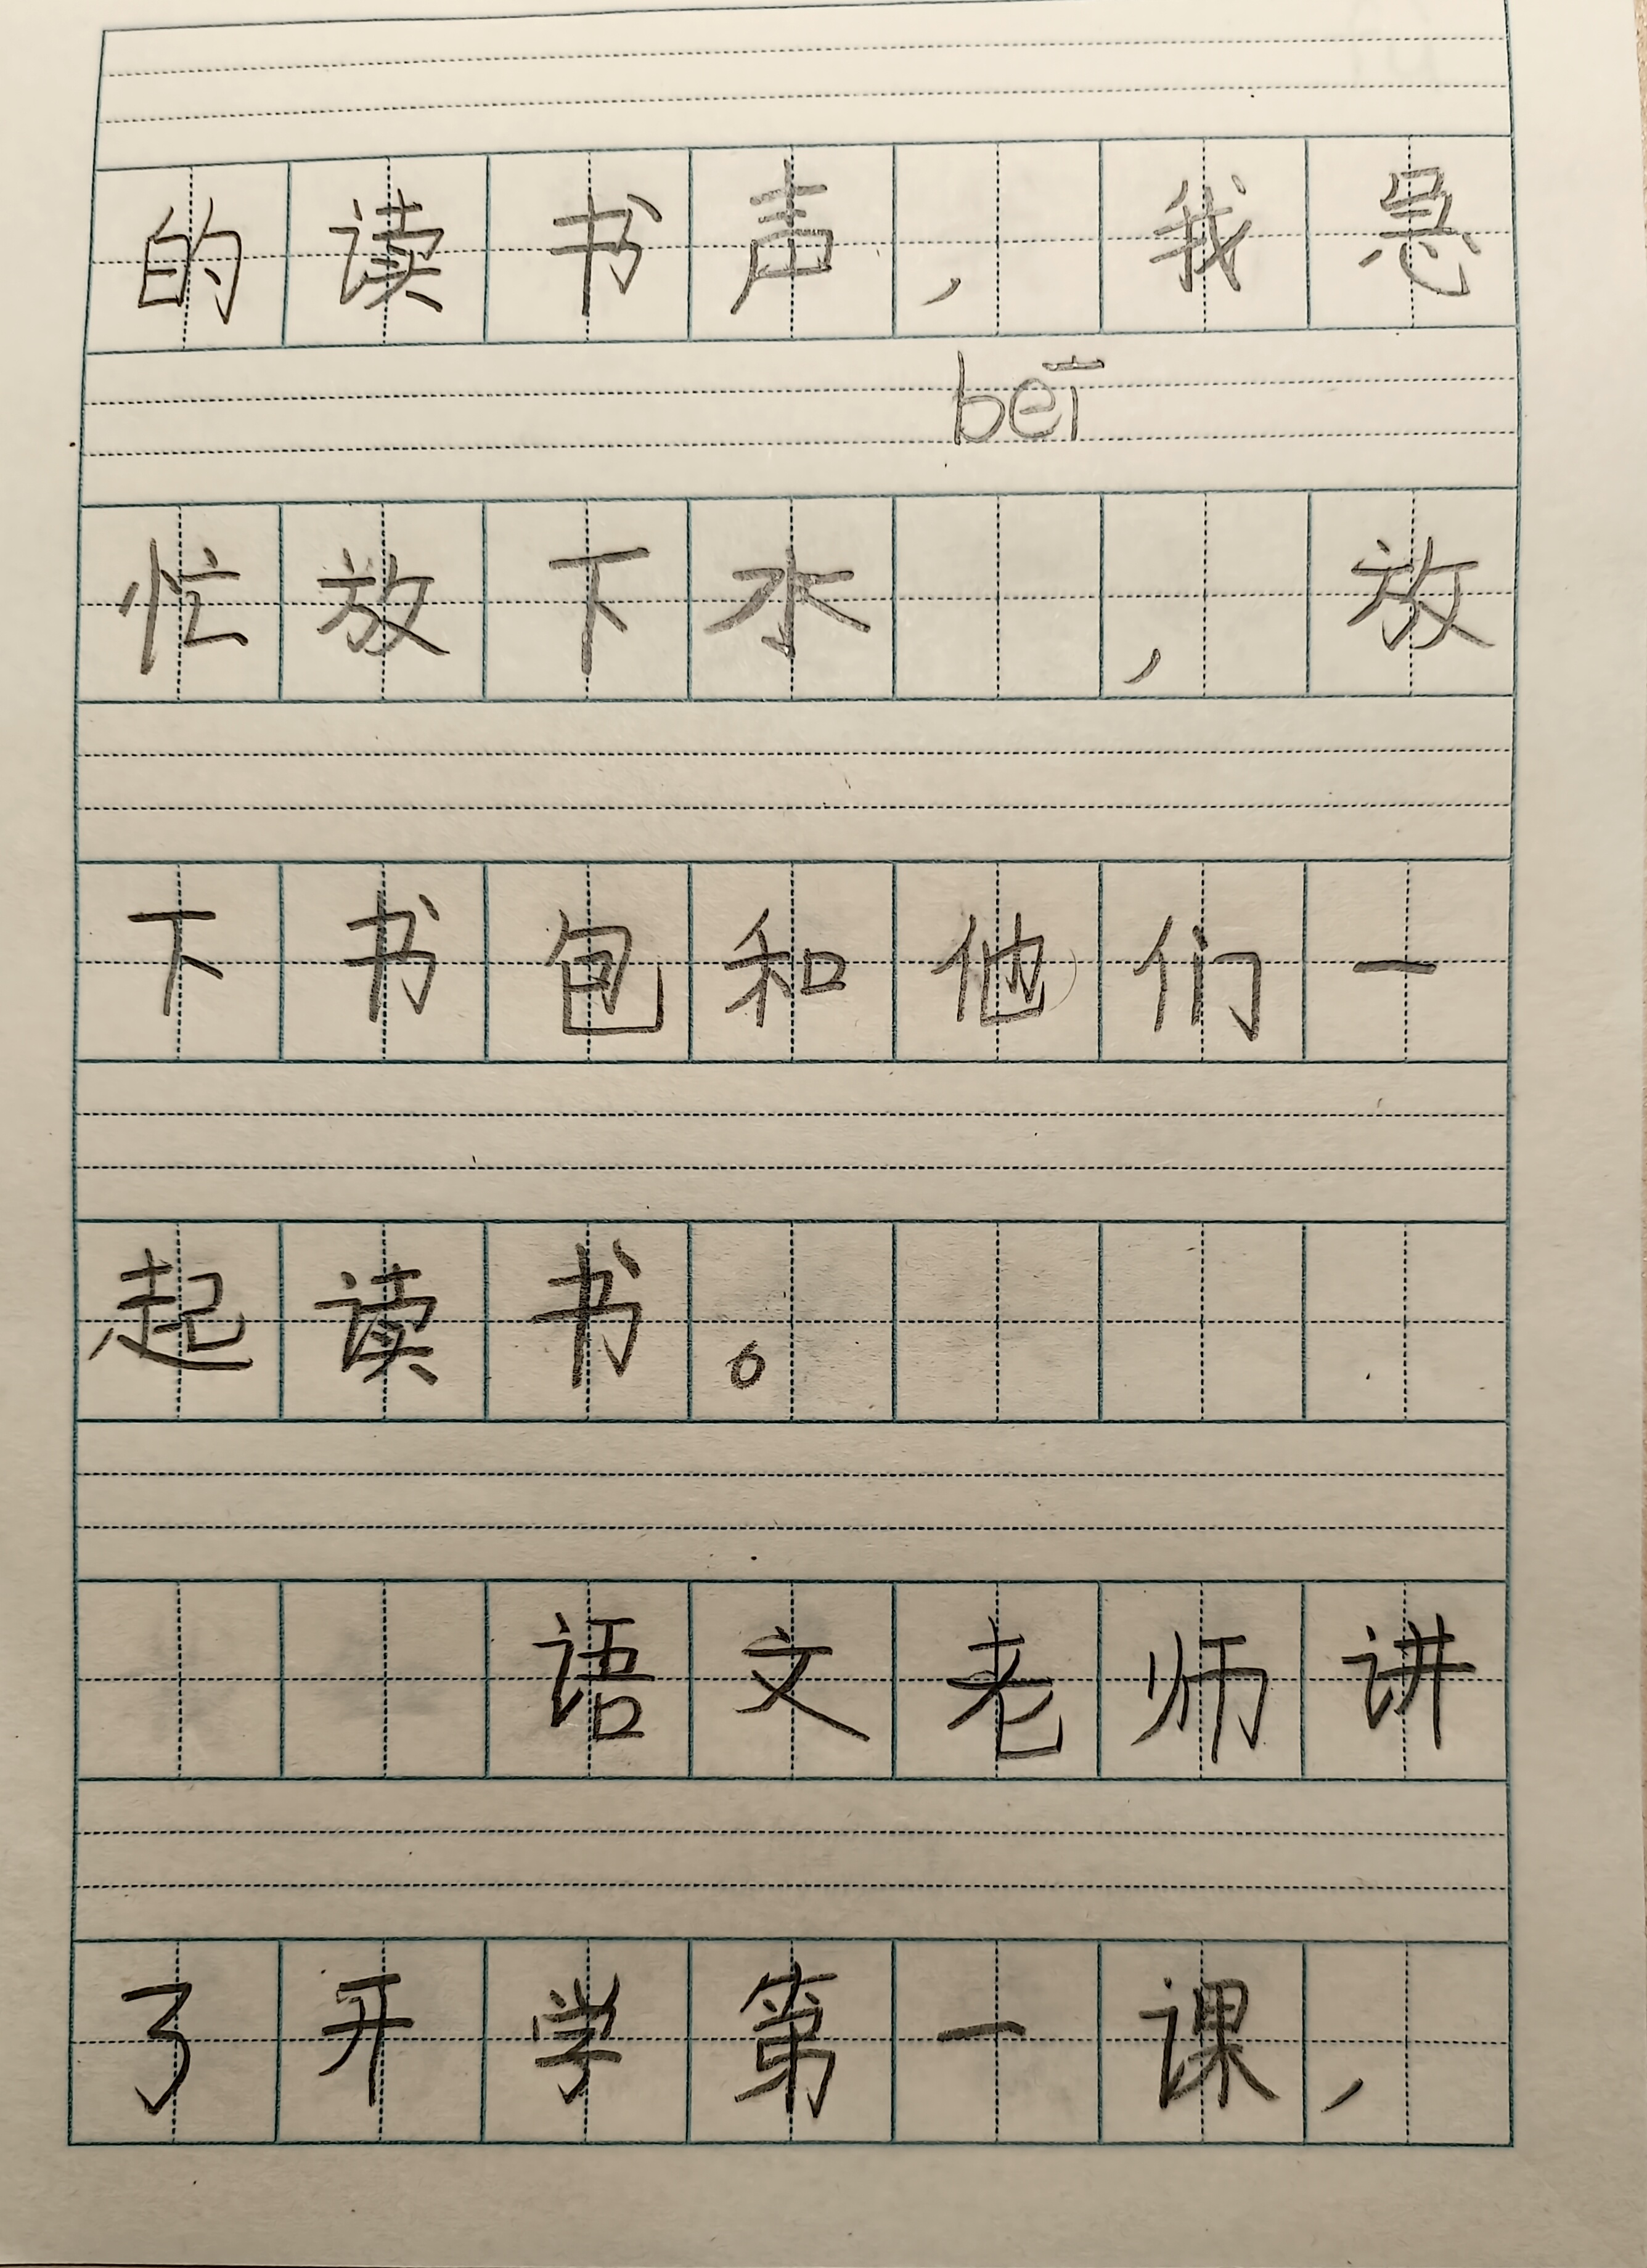 的读书声，我急
bēi
忙放下水　，放
下书包和他们一
起读书。
语文老师讲
了开学第一课，